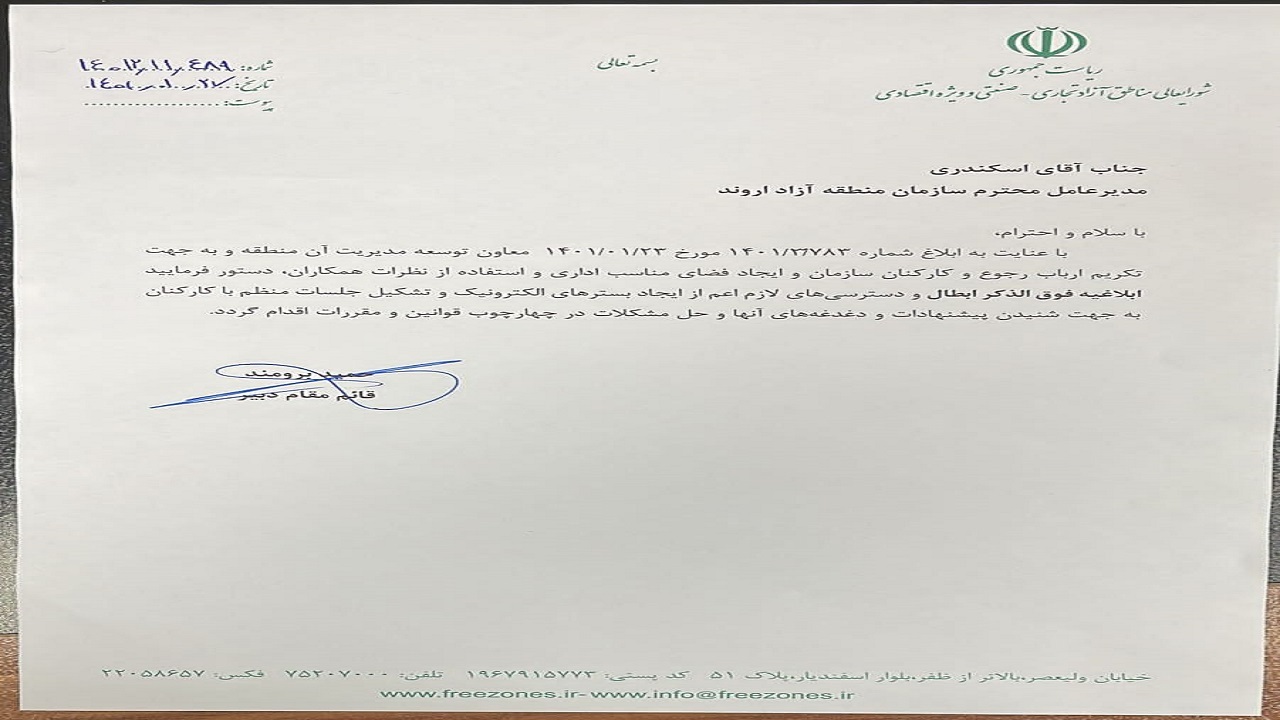 ریاست جمهوری
شورایعالی مناطق آزاد تجاری - صنعتی و ویژه اقتصادی
بسمه تعالی
شماره:
تاریخ:
پیوست:
جناب آقای اسکندری
مدیرعامل محترم سازمان منطقه آزاد اروند
با سلام و احترام،
با عنایت به ابلاغ شماره ۱۴۰۱/۳/۷۸۳ مورخ ۱۴۰۱/۰۱/۲۳ معاون توسعه مدیریت آن منطقه و به جهت
تکریم ارباب رجوع و کارکنان سازمان و ایجاد فضای مناسب اداری و استفاده از نظرات همکاران، دستور فرمایید
ابلاغیه فوق الذکر ابطال و دسترسی‌های لازم اعم از ایجاد بسترهای الکترونیک و تشکیل جلسات منظم با کارکنان
به جهت شنیدن پیشنهادات و دغدغه‌های آنها و حل مشکلات در چهارچوب قوانین و مقررات اقدام گردد.
حمید برومند
قائم مقام دبیر
خیابان ولیعصر،بالاتر از ظفر،بلوار اسفندیار،پلاک ۵۱ کد پستی: ۱۹۶۷۹۱۵۷۷۳ تلفن: ۷۵۲۰۷۰۰۰ فکس: ۲۲۰۵۸۶۵۷
www.freezones.ir-www.info@freezones.ir